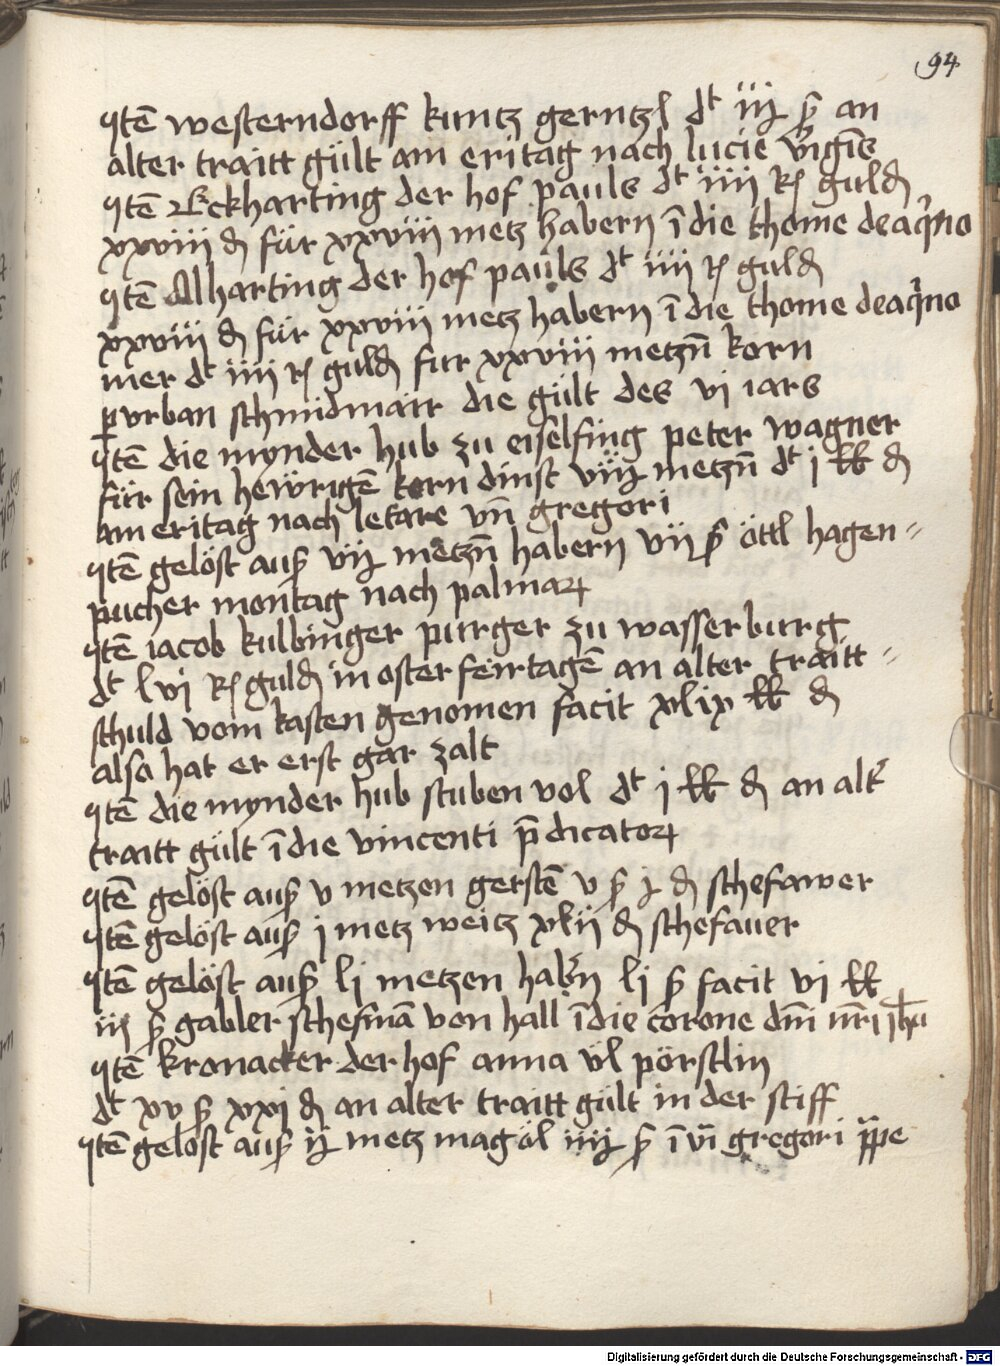 94
Itē westerndorff kuntz gerntzl dt iij ß an
alter traitt gült am eritag nach lucie v̄ginis
Itē Eckharting der hof pauls dt iiii R guldn
xxviii d für xxviii metz habern ī die thome de aq̇no
Itē Alharting der hof pauls dt iiii R guldn
xxviii d für xxviii metz habern ī die thome de aq̇no
mer dt iiii R guldn fur xxviii metzn̄ korn
p vrban schmidmair die gült des vi iars
Itē die mynder hub zu eiselfing peter wagner
für sein hewrigē korn dinst viij metzn̄ dt j ll d
am eritag nach letare vn̄ gregori
Itē gelöst auß vij metzn̄ habern vii ß öttl hagen=
pucher montag nach palmar
Itē iacob kulbinger purger zu wasserburg
dt lvi R guldn in osterfeirtagē an alter traitt=
schuld vom kasten genomen facit xlix ll d
also hat er erst gar zalt
Itē die mynder hub stuben vol dt j ll d an alt
traitt gült ī die vincenti p̄dicator
Itē gelöst auß v metzen gerstē v ß j d schefawer
Itē gelöst auß j metz weitz xlij d schefauer
Itē gelöst auß lj metzen habn̄ lj ß facit vi ll
iij ß gabler schefmā von hall ī die corone dn̄i nr̄i ihu
Itē kronacker der hof anna vl pörstlin
dt xv ß xxj d an alter traitt gült in der stifft
Itē gelöst auß ij metz mag öl iiij ß ī vi gregori ppe
Digitalisierung gefördert durch die Deutsche Forschungsgemeinschaft - DFG